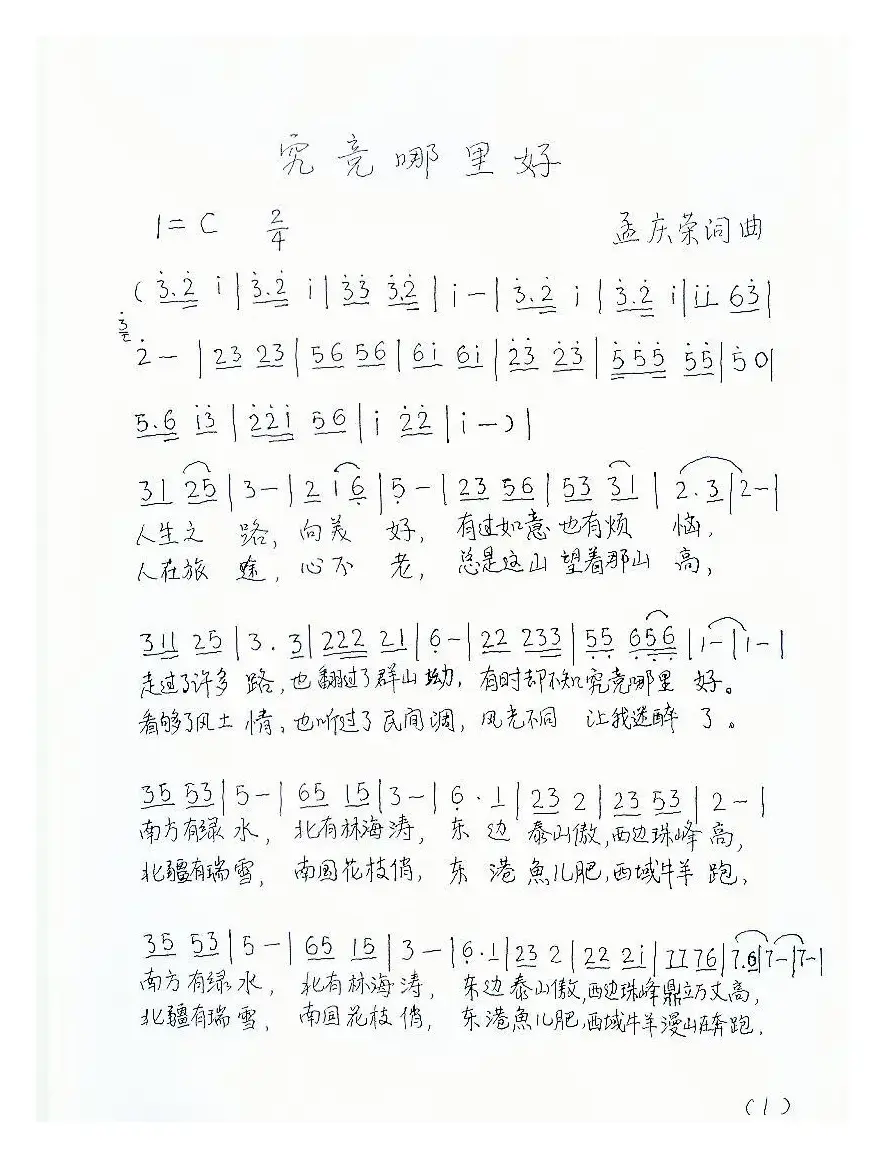 究竟哪里好
1=C 2/4 孟庆荣词曲
(3.2 i|3.2 i|33 3.2|i-|3.2 i|3.2 i|ii 63|
3 2-|23 23|56 56|6i 6i|23 23|555 55|50|
5.6 i3|22i 56|i 22|i-)|
31 25|3-|2 16|5-|23 56|53 31|2.3|2-|
人生之路,向美好,有过如意也有烦恼,
人在旅途,心不老,总是这山望着那山高,
311 25|3.3|222 21|6-|22 233|55 656|1-|1-|
走过了许多路,也翻过了群山坳,有时却不知究竟哪里好。
看够了风土情,也听过了民间调,风光不同让我迷醉了。
35 53|5-|65 15|3-|6.1|23 2|23 53|2-|
南方有绿水,北有林海涛,东边泰山傲,西边珠峰高,
北疆有瑞雪,南国花枝俏,东港魚儿肥,西域牛羊跑,
35 53|5-|65 15|3-|6.1|23 2|22 2i|77 76|7.6|7-|7-|
南方有绿水,北有林海涛,东边泰山傲,西边珠峰鼎立万丈高,
北疆有瑞雪,南国花枝俏,东港魚儿肥,西域牛羊漫山在奔跑.
(1)